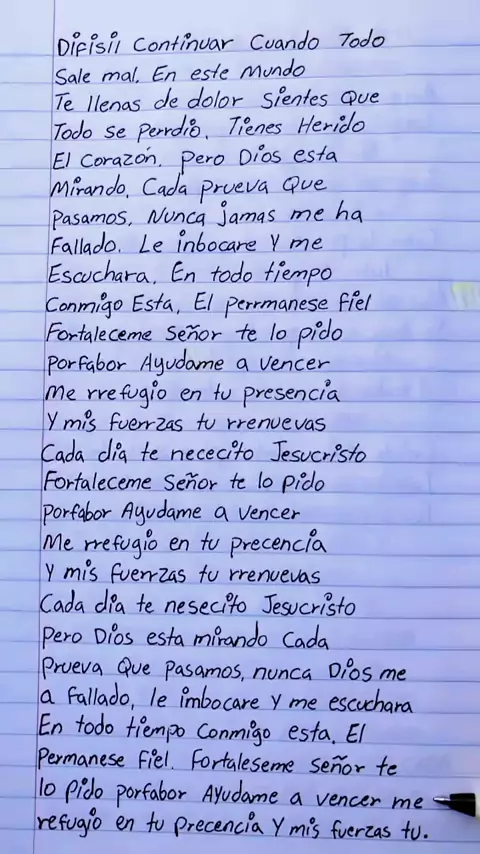 Dificil Continuar Cuando Todo
Sale mal. En este Mundo
Te llenas de dolor Sientes Que
Todo se perrdio. Tienes Herido
El Corazón. pero Dios esta
Mirando. Cada prueva Que
pasamos, Nunca jamas me ha
Fallado. Le inbocare Y me
Escuchara. En todo tiempo
Conmigo Esta, El perrmanese fiel
Fortaleceme Señor te lo pido
porfabor Ayudame a vencer
Me rrefugio en tu presencia
Y mis fuerrzas tu rrenuevas
Cada dia te nececito Jesucristo
Fortaleceme Señor te lo pido
porfabor Ayudame a vencer
Me rrefugio en tu precencia
Y mis fuerrzas tu rrenuevas
Cada dia te nesecito Jesucristo
Pero Dios esta mirando Cada
Prueva Que pasamos, nunca Dios me
a fallado, le imbocare Y me escuchara
En todo tiempo Conmigo esta. El
Permanese fiel. Fortaleseme señor te
lo pido porfabor Ayudame a vencer me
refugio en tu Precencia Y mis fuerzas tu.